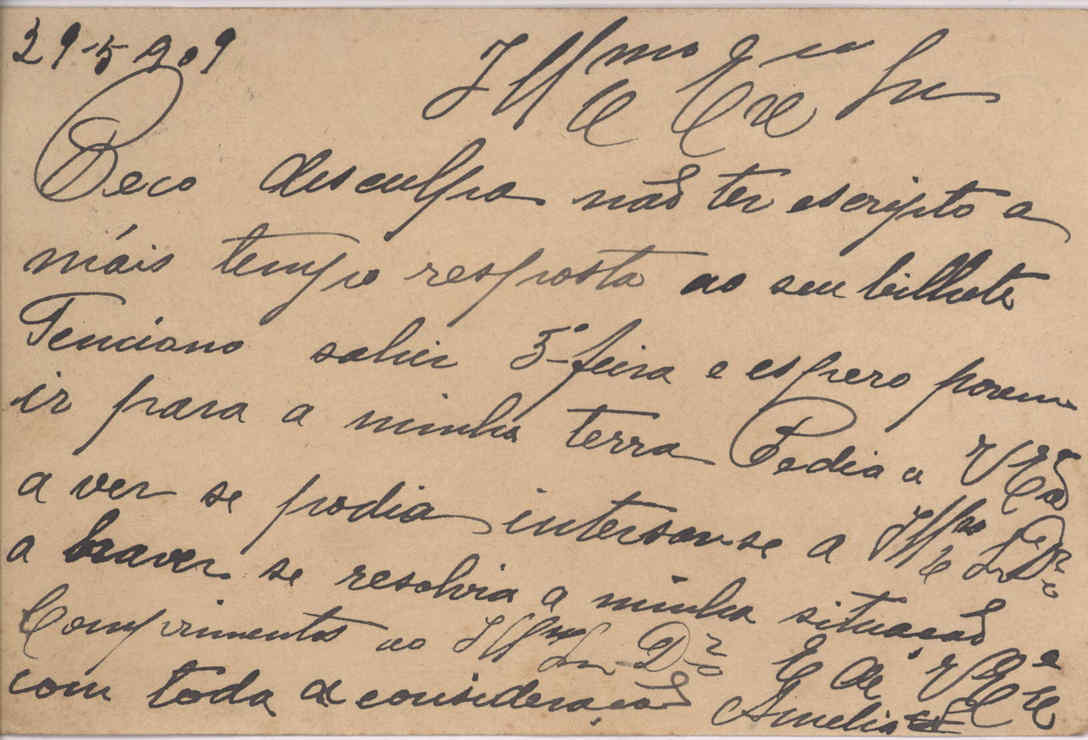 29-5-909
Illmo e Exmo Sr
Peço desculpa não ter escripto a
máis tempo resposta ao seu bilhete
Tenciono sahir 5ª feira e espero porem
ir para a minha terra Pedia a V Exª
a ver se podia a Illmo Sr Dr
a haver se resolvia a minha situação
Comprimentos ao Illmo Sr Dr E de V Exª
com toda a consideração Amelia